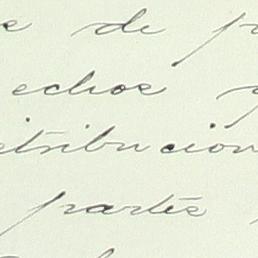 de p
echos y
tribucion
partes